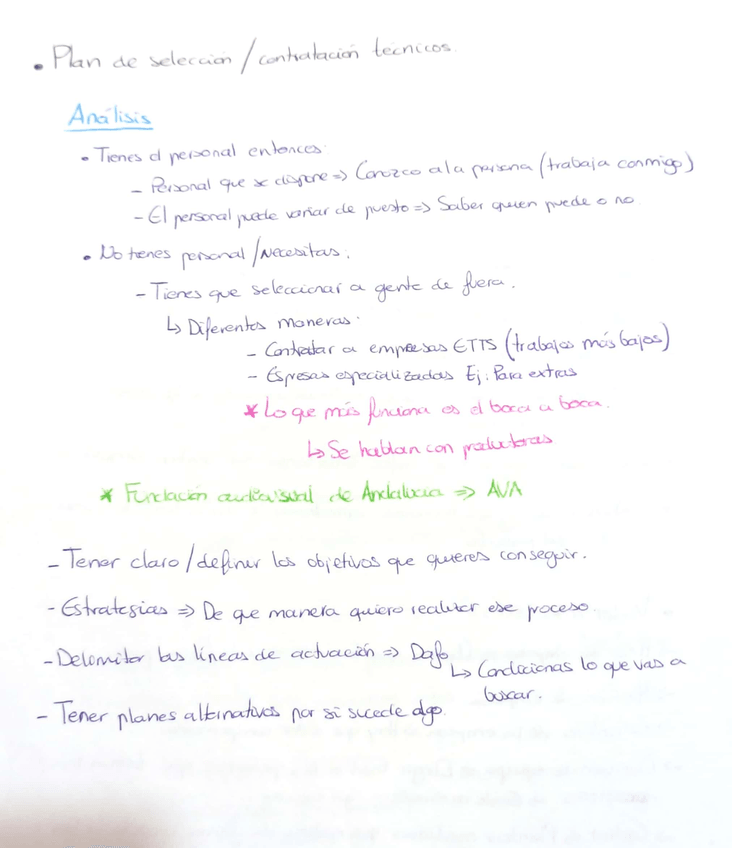 • Plan de selección / contratación técnicos.
Análisis
• Tienes el personal entonces:
- Personal que se dispone => Conozco a la persona (trabaja conmigo)
- El personal puede variar de puesto => Saber quien puede o no
• No tienes personal / Necesitas.
- Tienes que seleccionar a gente de fuera.
↳ Diferentes maneras:
- Contratar a empresas ETTS (trabajos más bajos)
- Espresas especializadas Ej: Para extras
* Lo que más funciona es el boca a boca.
↳ Se hablan con productoras
* Fundación audiovisual de Andalucía => AVA
- Tener claro / definir los objetivos que quieres conseguir.
- Estrategias => De que manera quiero realizar ese proceso.
- Delomitar las líneas de actuación => Dafo
↳ Condicionas lo que vas a
buscar.
- Tener planes alternativos por si sucede algo.